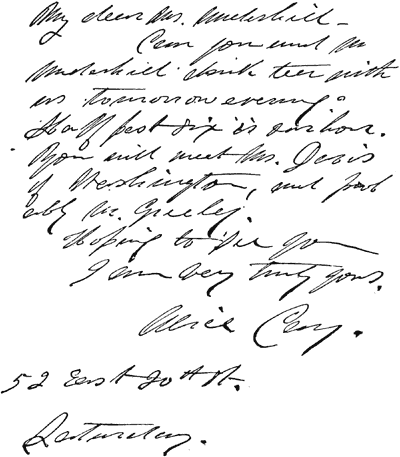 My dear Mrs. Underhill –
Can you and Mr
Underhill drink tea with
us tomorrow evening?
Half past six is our hour.
You will meet Mrs. Davis
of Washington, and prob
ably Mr. Greeley.
Hoping to see you
I am very truly yours.
Alice Cary.
52 East 20th St.
Saturday.